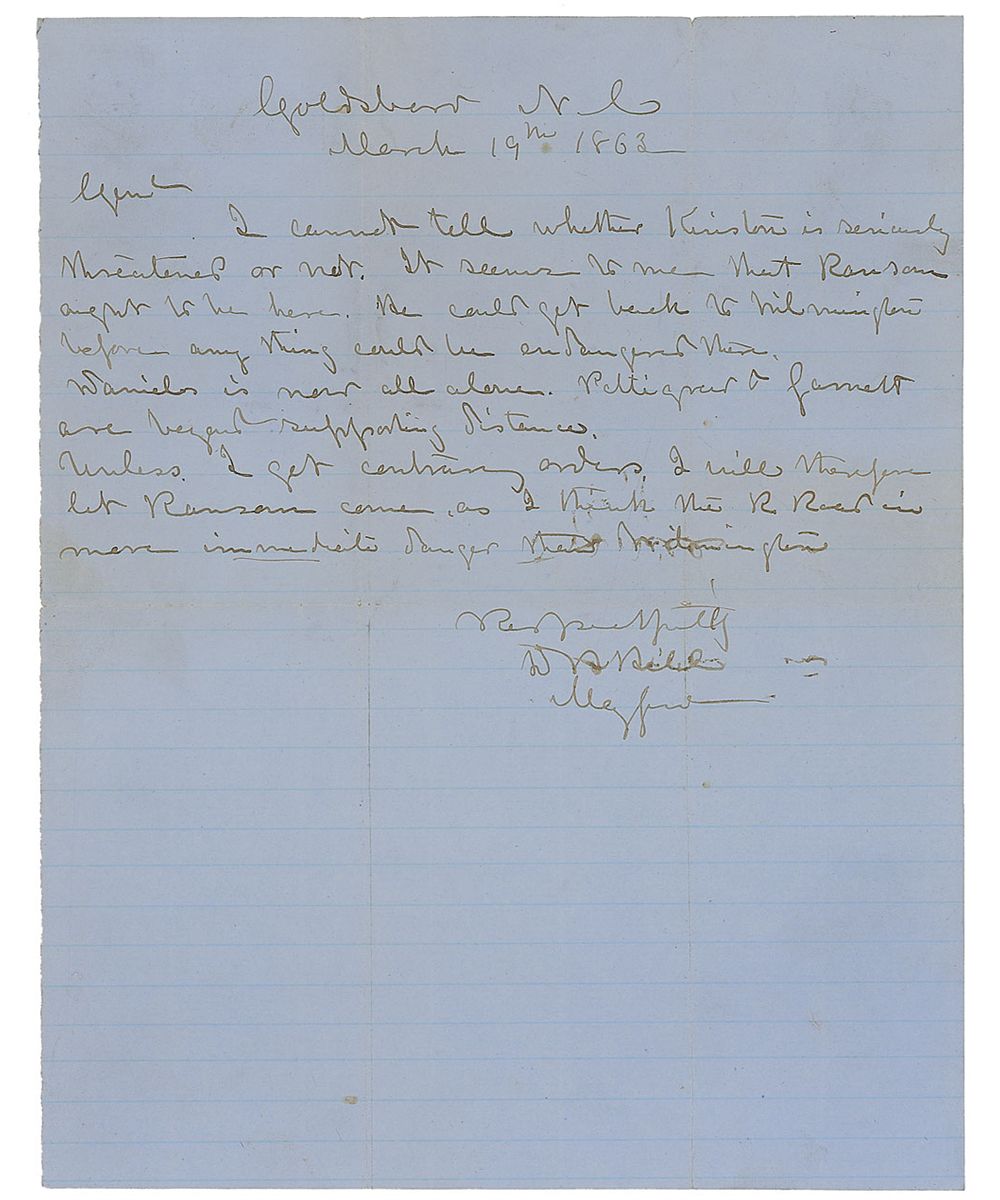 Goldsboro N C
March 19th 1863
Genl
I cannot tell whether Kinston is seriously
threatened or not. It seems to me that Ransom
ought to be here. He could get back to Wilmington
before any thing could be endangered there.
Daniels is now all alone. Pettigrew & Garnett
are beyond supporting distance.
Unless I get contrary orders, I will therefore
let Ransom come, as I think the R. Road in
more immediate danger than Wilmington
Respectfully
D H Hill
Maj Genl